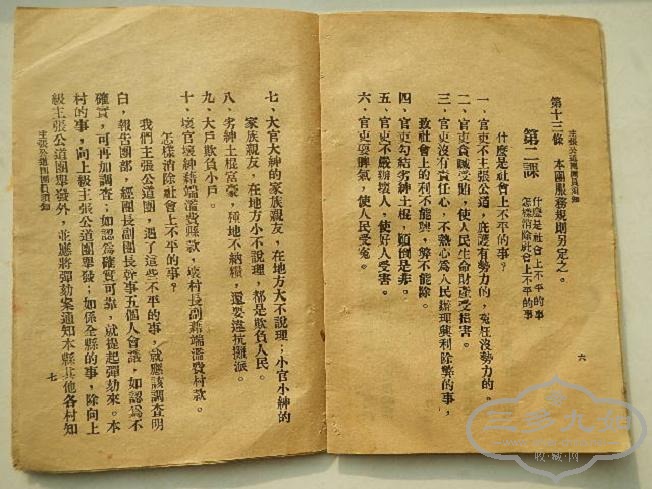 第十三條　本團服務規則另定之。
主張公道團團員須知
第二課
什麼是社會上不平的事
怎樣消除社會上不平的事
什麼是社會上不平的事？
一、官吏不主張公道，庇護有勢力的，冤枉沒勢力的。
二、官吏貪贓受賄，使人民生命財產受損害。
三、官吏沒有責任心，不熱心為人民辦理興利除弊的事，
致社會上的利不能興，弊不能除。
四、官吏勾結劣紳土棍，顛倒是非。
五、官吏不嚴辦壞人，使好人受害。
六、官吏耍脾氣，使人民受冤。
六
七、大官大紳的家族親友，在地方大不說理；小官小紳的
家族親友，在地方小不說理，都是欺負人民。
八、劣紳土棍富豪，種地不納糧，還要違抗攤派。
九、大戶欺負小戶。
十、壞官壞紳藉端濫費縣款，壞村長副藉端濫費村款。
怎樣消除社會上不平的事？
我們主張公道團，遇了這些不平的事，就應該調查明
白，報告團部，經團長副團長幹事五個人會議，如認為不
確實，可再加調查；如認為確實可靠，就提起彈劾來。本
村的事，向上級主張公道團舉發；如係全縣的事，除向上
級主張公道團舉發外，並應將彈劾案通知本縣其他各村知
主張公道團團員須知
七
三多九如
收·藏·网